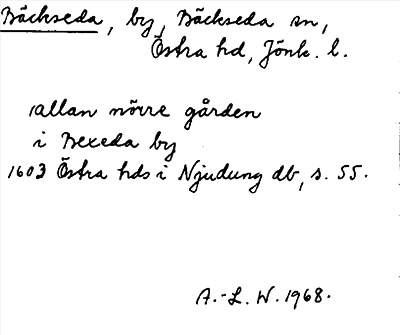 Bäckseda, by, Bäckseda sn,
Östra hd, Jönk. l.
allan nörre gården
i Bexeda by
1603 Östra hds i Njudung db, s. 55.
A.-L. W. 1968.